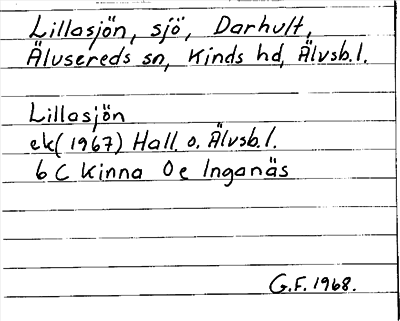 Lillasjön, sjö, Darhult,
Älvsereds sn, Kinds hd, Älvsb.l.
Lillasjön
ek (1967) Hall. o. Älvsb.l.
6 C Kinna 0 e Inganäs
G.F. 1968.